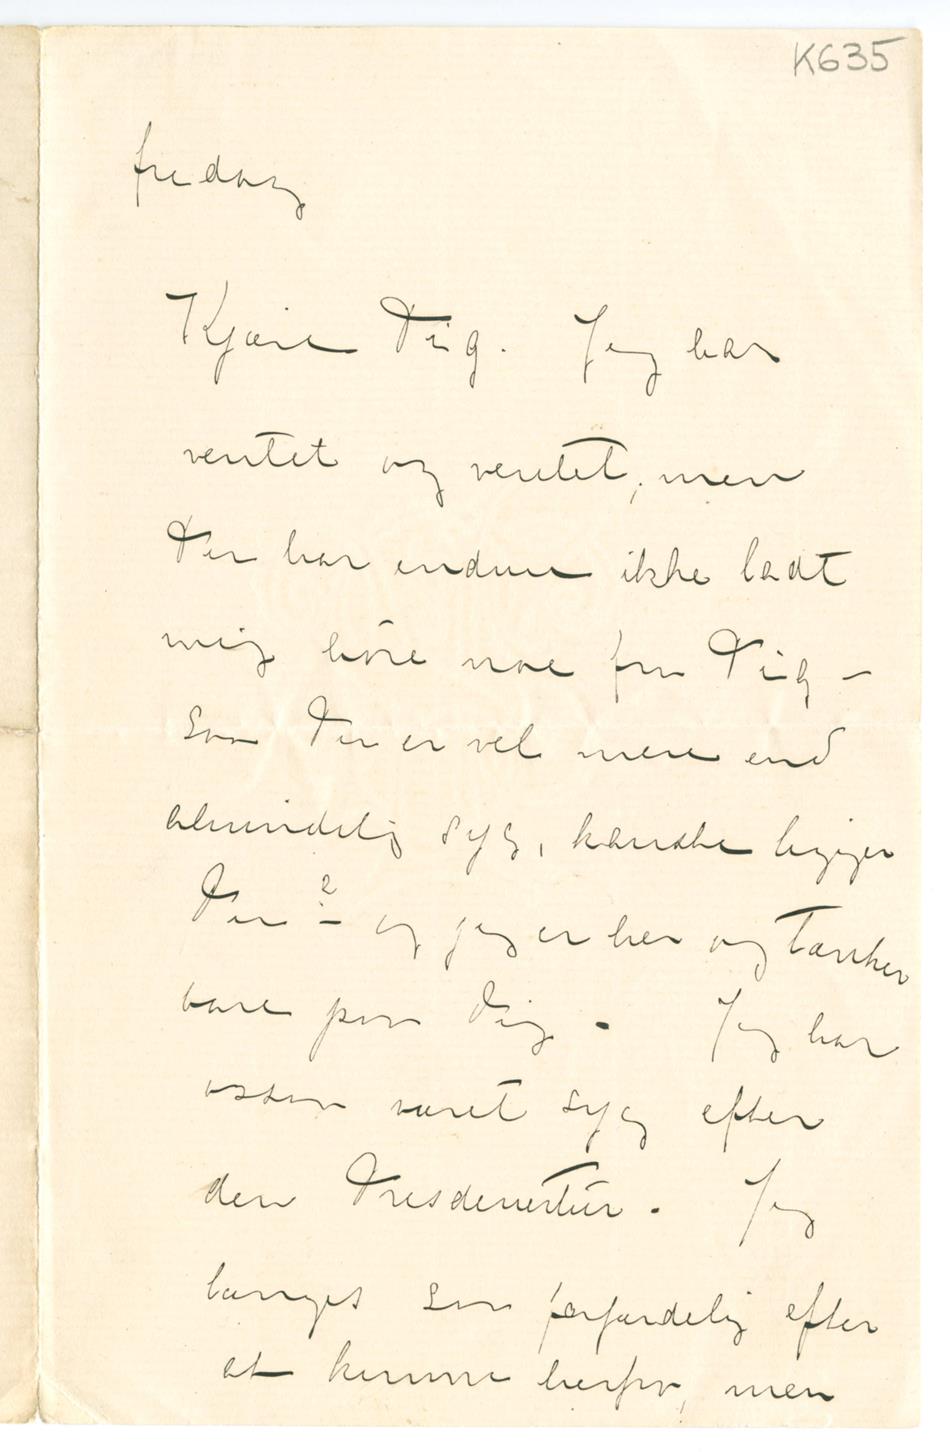 K635
fredag
Kjære Dig. Jeg har
ventet og ventet, men
Du har endnu ikke ladt
mig høre noe fra Dig –
saa Du er vel mere end
almindelig syg, kanske ligger
Du? – og jeg er her og tænker
bare paa Dig – Jeg har
ossaa været syg efter
den Dresdenertur. Jeg
længes saa forfærdelig efter
at komme herfra, men